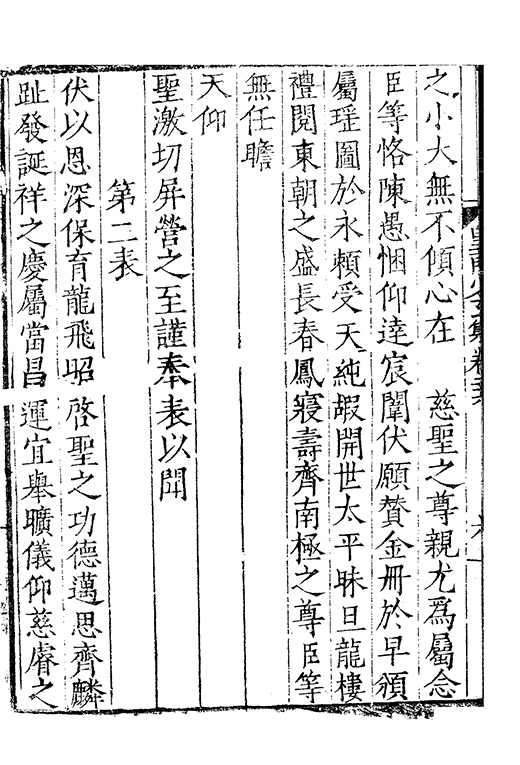 之小大無不傾心在　慈聖之尊親尤爲屬念
臣等恪陳愚悃仰逹宸闈伏願賛金冊於早頒
屬瑶圖於永頼受天純嘏開世太平昧旦龍樓
禮閱東朝之盛長春鳳寢壽齊南極之尊臣等
無任瞻
天仰
聖激切屏營之至謹奉表以聞
第二表
伏以恩深保育龍飛昭啓聖之功德邁思齊麟
趾發誕祥之慶屬當昌運宜舉曠儀仰慈睿之